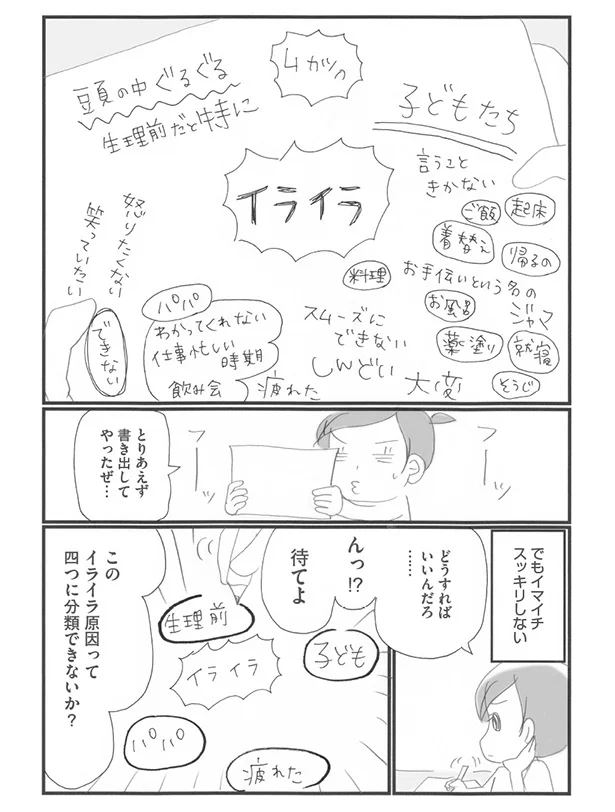 頭の中ぐるぐる
生理前だと特に
4ガツの
子どもたち
言うこと
きかない
ご飯
起床
着替え
帰るの
お手伝いという名の
ジャマ
お風呂
薬塗り
就寝
そうじ
イライラ
料理
スムーズに
できない
しんどい
大変
怒りたくない
笑っていたい
できない
パパ
わかってくれない
仕事忙しい
時期
飲み会
疲れた
フーッ
フーッ
とりあえず
書き出して
やったぜ…
でもイマイチ
スッキリしない
どうすれば
いいんだろ
……
んっ!?
待てよ
生理前
イライラ
子ども
パパ
疲れた
この
イライラ原因って
四つに分類できないか?